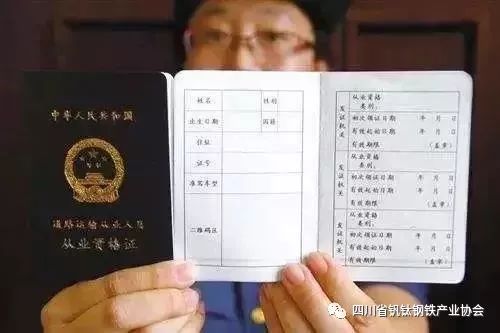 中华人民共和国
道路运输从业人员
从业资格证
姓名 性别
出生日期 国籍
住址
证号
准驾车型
二维码区
发证机关
从业资格
类别:
初次领证日期 年 月 日
有效起始日期 年 月 日
有效期限 (盖章)
发证机关
从业资格
类别:
初次领证日期 年 月 日
有效起始日期 年 月 日
有效期限 (盖章)
发证机关
从业资格
类别:
初次领证日期 年 月 日
有效起始日期 年 月 日
有效期限 (盖章)
四川省钒钛钢铁产业协会